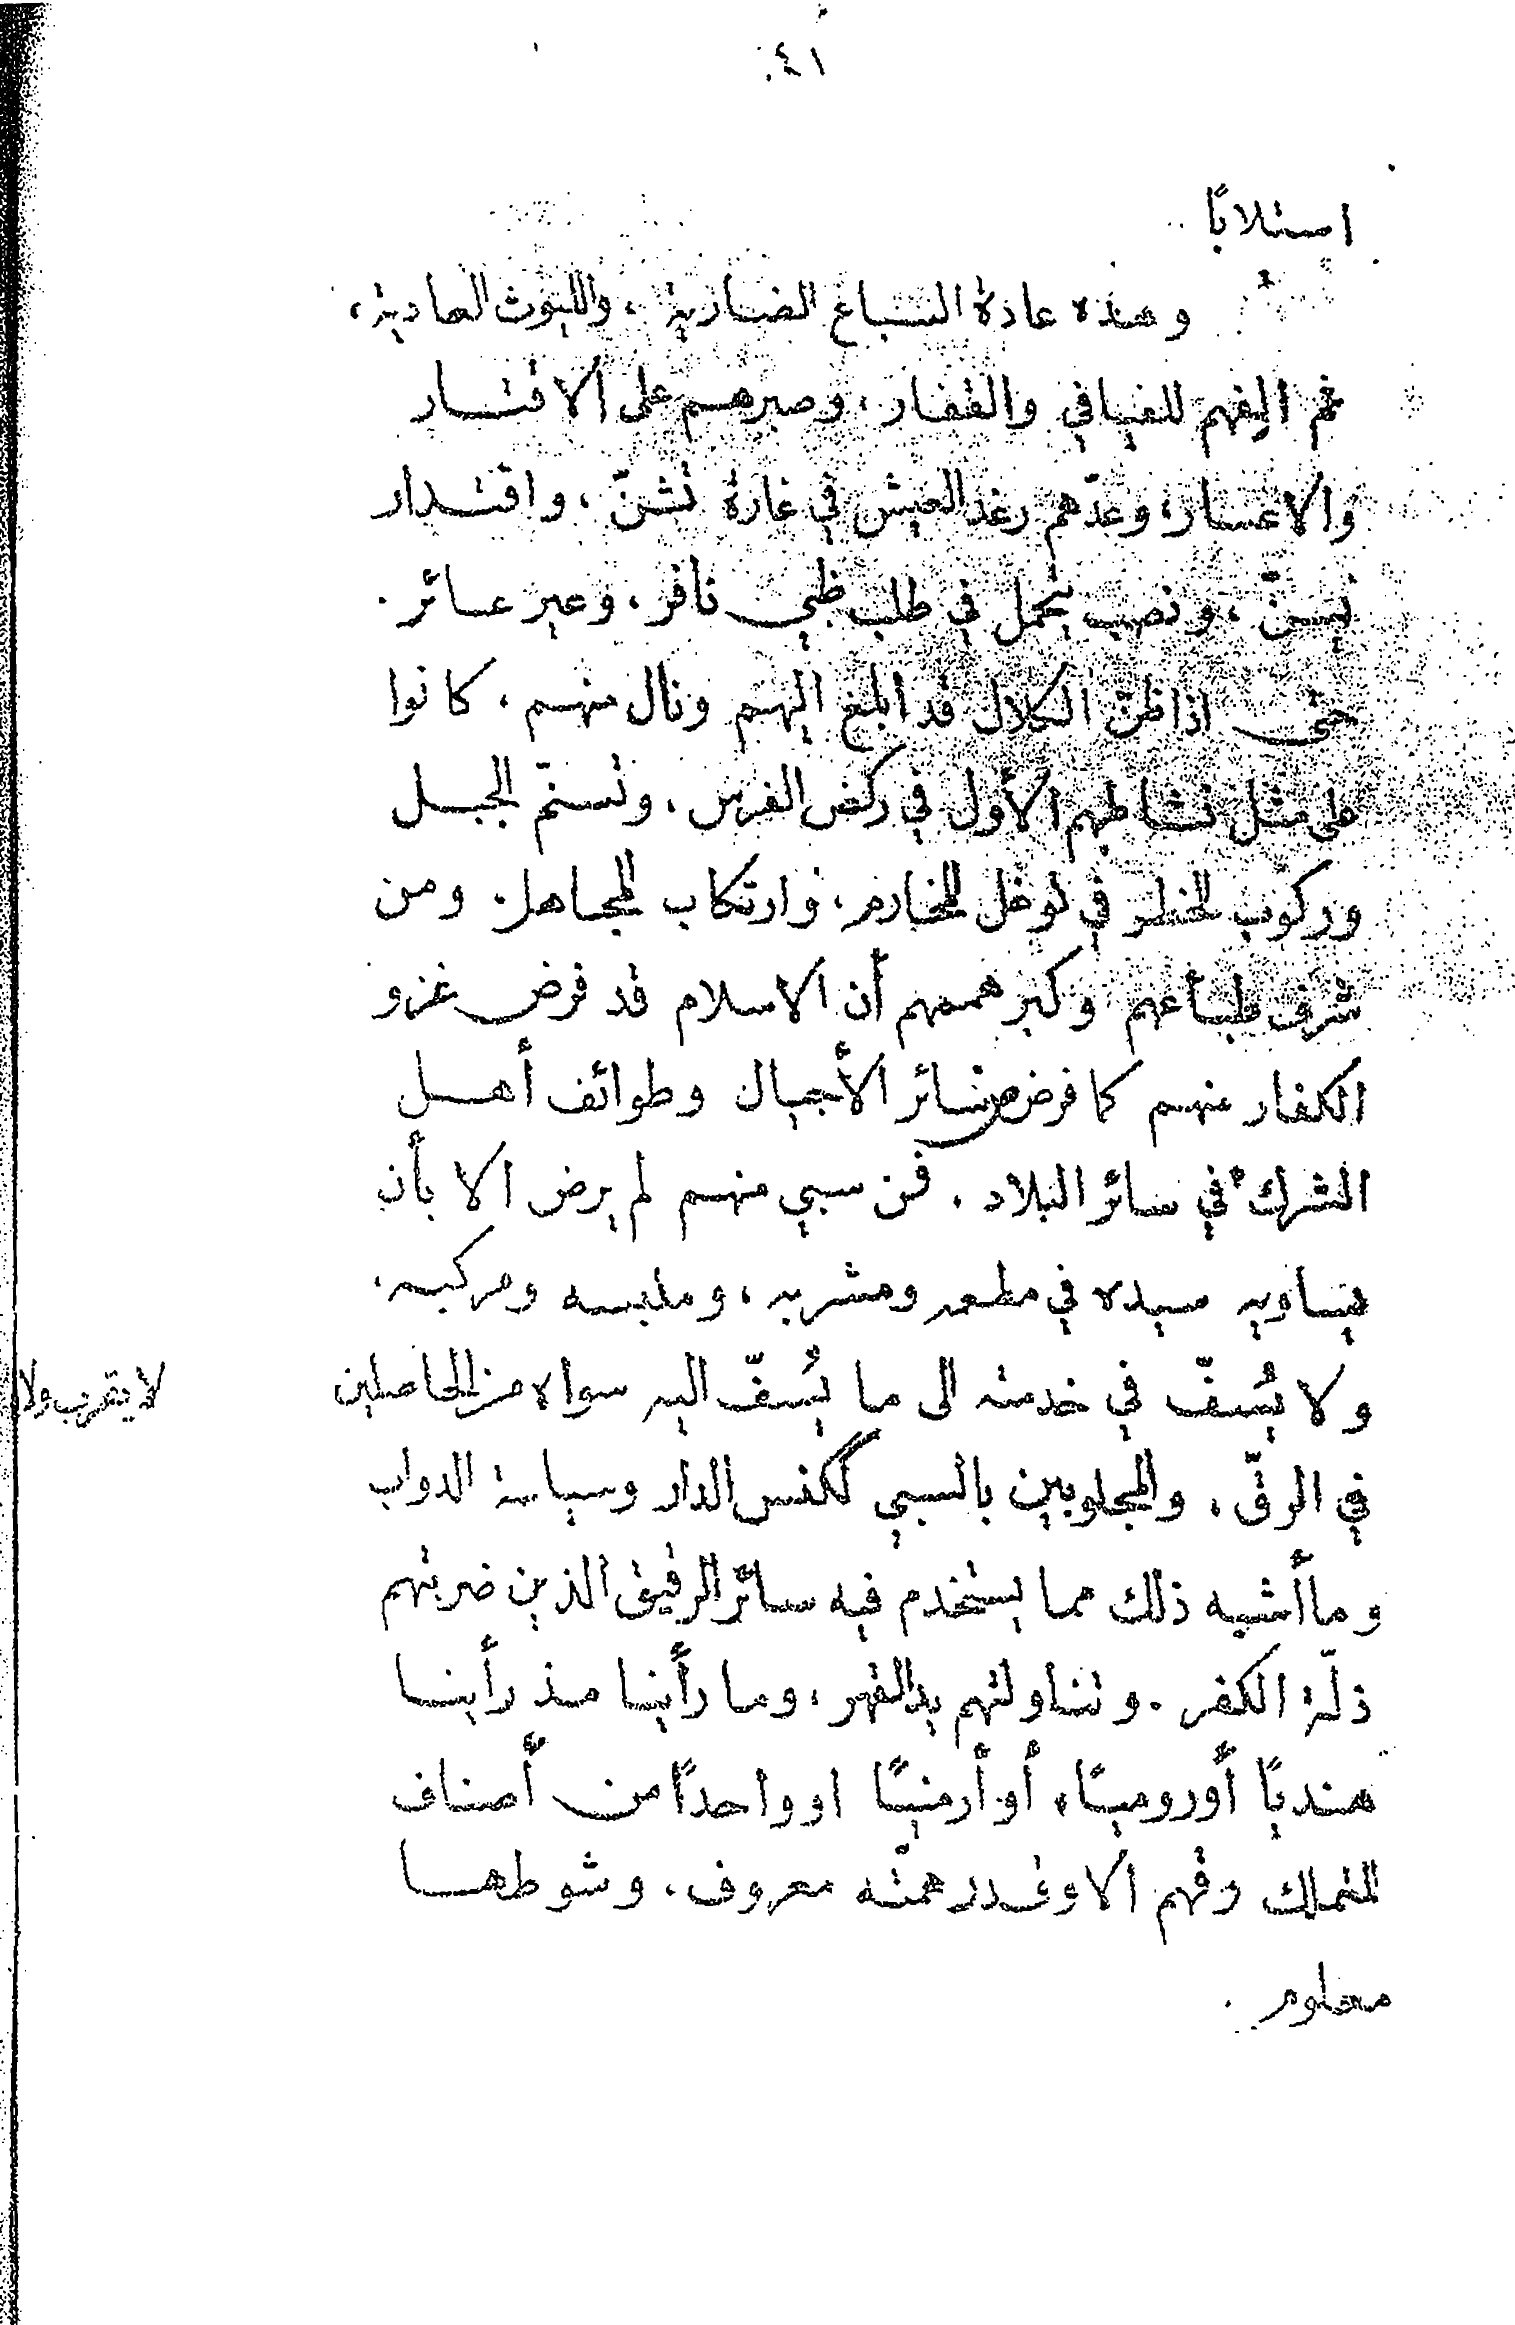 ٤١
استلابًا
وهذه عادة السباع الضارية ، والليوث العادية ،
ثم الِفهم للفيافي والقفار ، وصبرهم على الاقتار
والاعسار ، وعدّهم رغد العيش في غارة تشنّ ، واقتدار
يسنّ ، ونصب يتحمل في طلب ظبي نافر ، وعير عائر .
حتى اذا ظنّ الكلال قد ابلغ اليهم ونال منهم ، كانوا
على مثل نشاطهم الأول في ركض الفرس ، وتسنّم الجبل
وركوب الخطر في توغل المخارم ، وارتكاب المجاهل . ومن
شرف طباعهم وكبر هممهم أن الاسلام قد فرض غزو
الكفار منهم كما فرض من سائر الأجيال وطوائف أهل
الشرك في سائر البلاد ، فمن سبي منهم لم يرض الا بأن
يساويه سيده في مطعمه ومشربه ، وملبسه ومركبه ،
ولا يُسفّ في خدمته الى ما يُسفّ اليه سواه من الحاصلين
لا يقرب ولا
في الرقّ ، والمجلوبين بالسبي لكنس الدار وسياسة الدواب
وما أشبه ذلك مما يستخدم فيه سائر الرقيق الذين ضربتهم
ذلّة الكفر . وتناولتهم يد القهر ، وما رأينا مذ رأينا
هنديًا أو روميًا ، أو أرمنيًا او واحدًا من أصناف
المتملك رقهم الا وقدر همّته معروف ، وشوطها
معلوم .